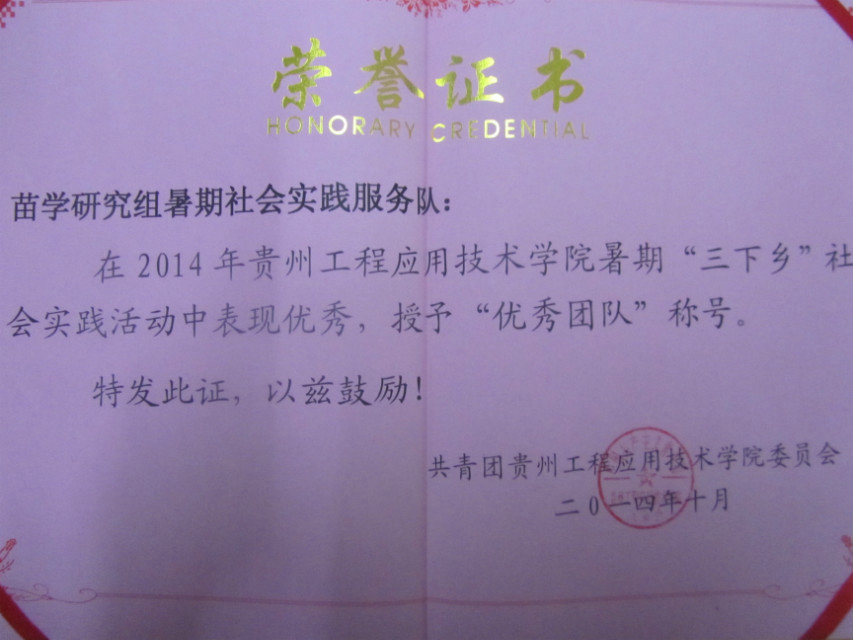 荣誉证书
HONORARY CREDENTIAL
苗学研究组暑期社会实践服务队：
在2014年贵州工程应用技术学院暑期“三下乡”社
会实践活动中表现优秀，授予“优秀团队”称号。
特发此证，以兹鼓励！
共青团贵州工程应用技术学院委员会
二0一四年十月